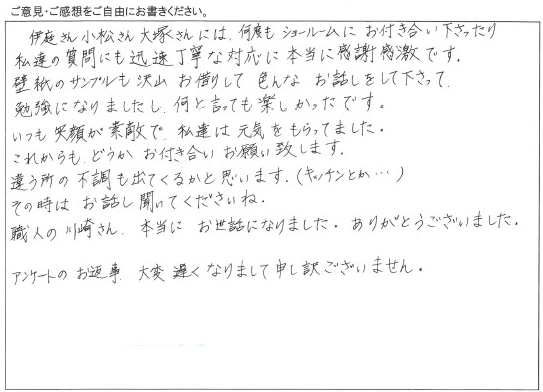 ご意見・ご感想をご自由にお書きください。
伊庭さん 小松さん 大塚さんには、何度も ショールームに お付き合い下さったり
私達の質問にも 迅速丁寧な対応に 本当に感謝感激です。
壁紙のサンプルも 沢山 お借りして 色んな お話しをして下さって、
勉強になりましたし、何と言っても楽しかったです。
いつも 笑顔が素敵で、私達は 元気を もらってました。
これからも、どうか お付き合い お願い致します。
違う所の 不調も出てくるかと思います。(キッチンとか…)
その時は お話し聞いてくださいね。
職人の 川崎さん、本当に お世話になりました。ありがとうございました。
アンケートの お返事、大変 遅くなりまして申し訳ございません。